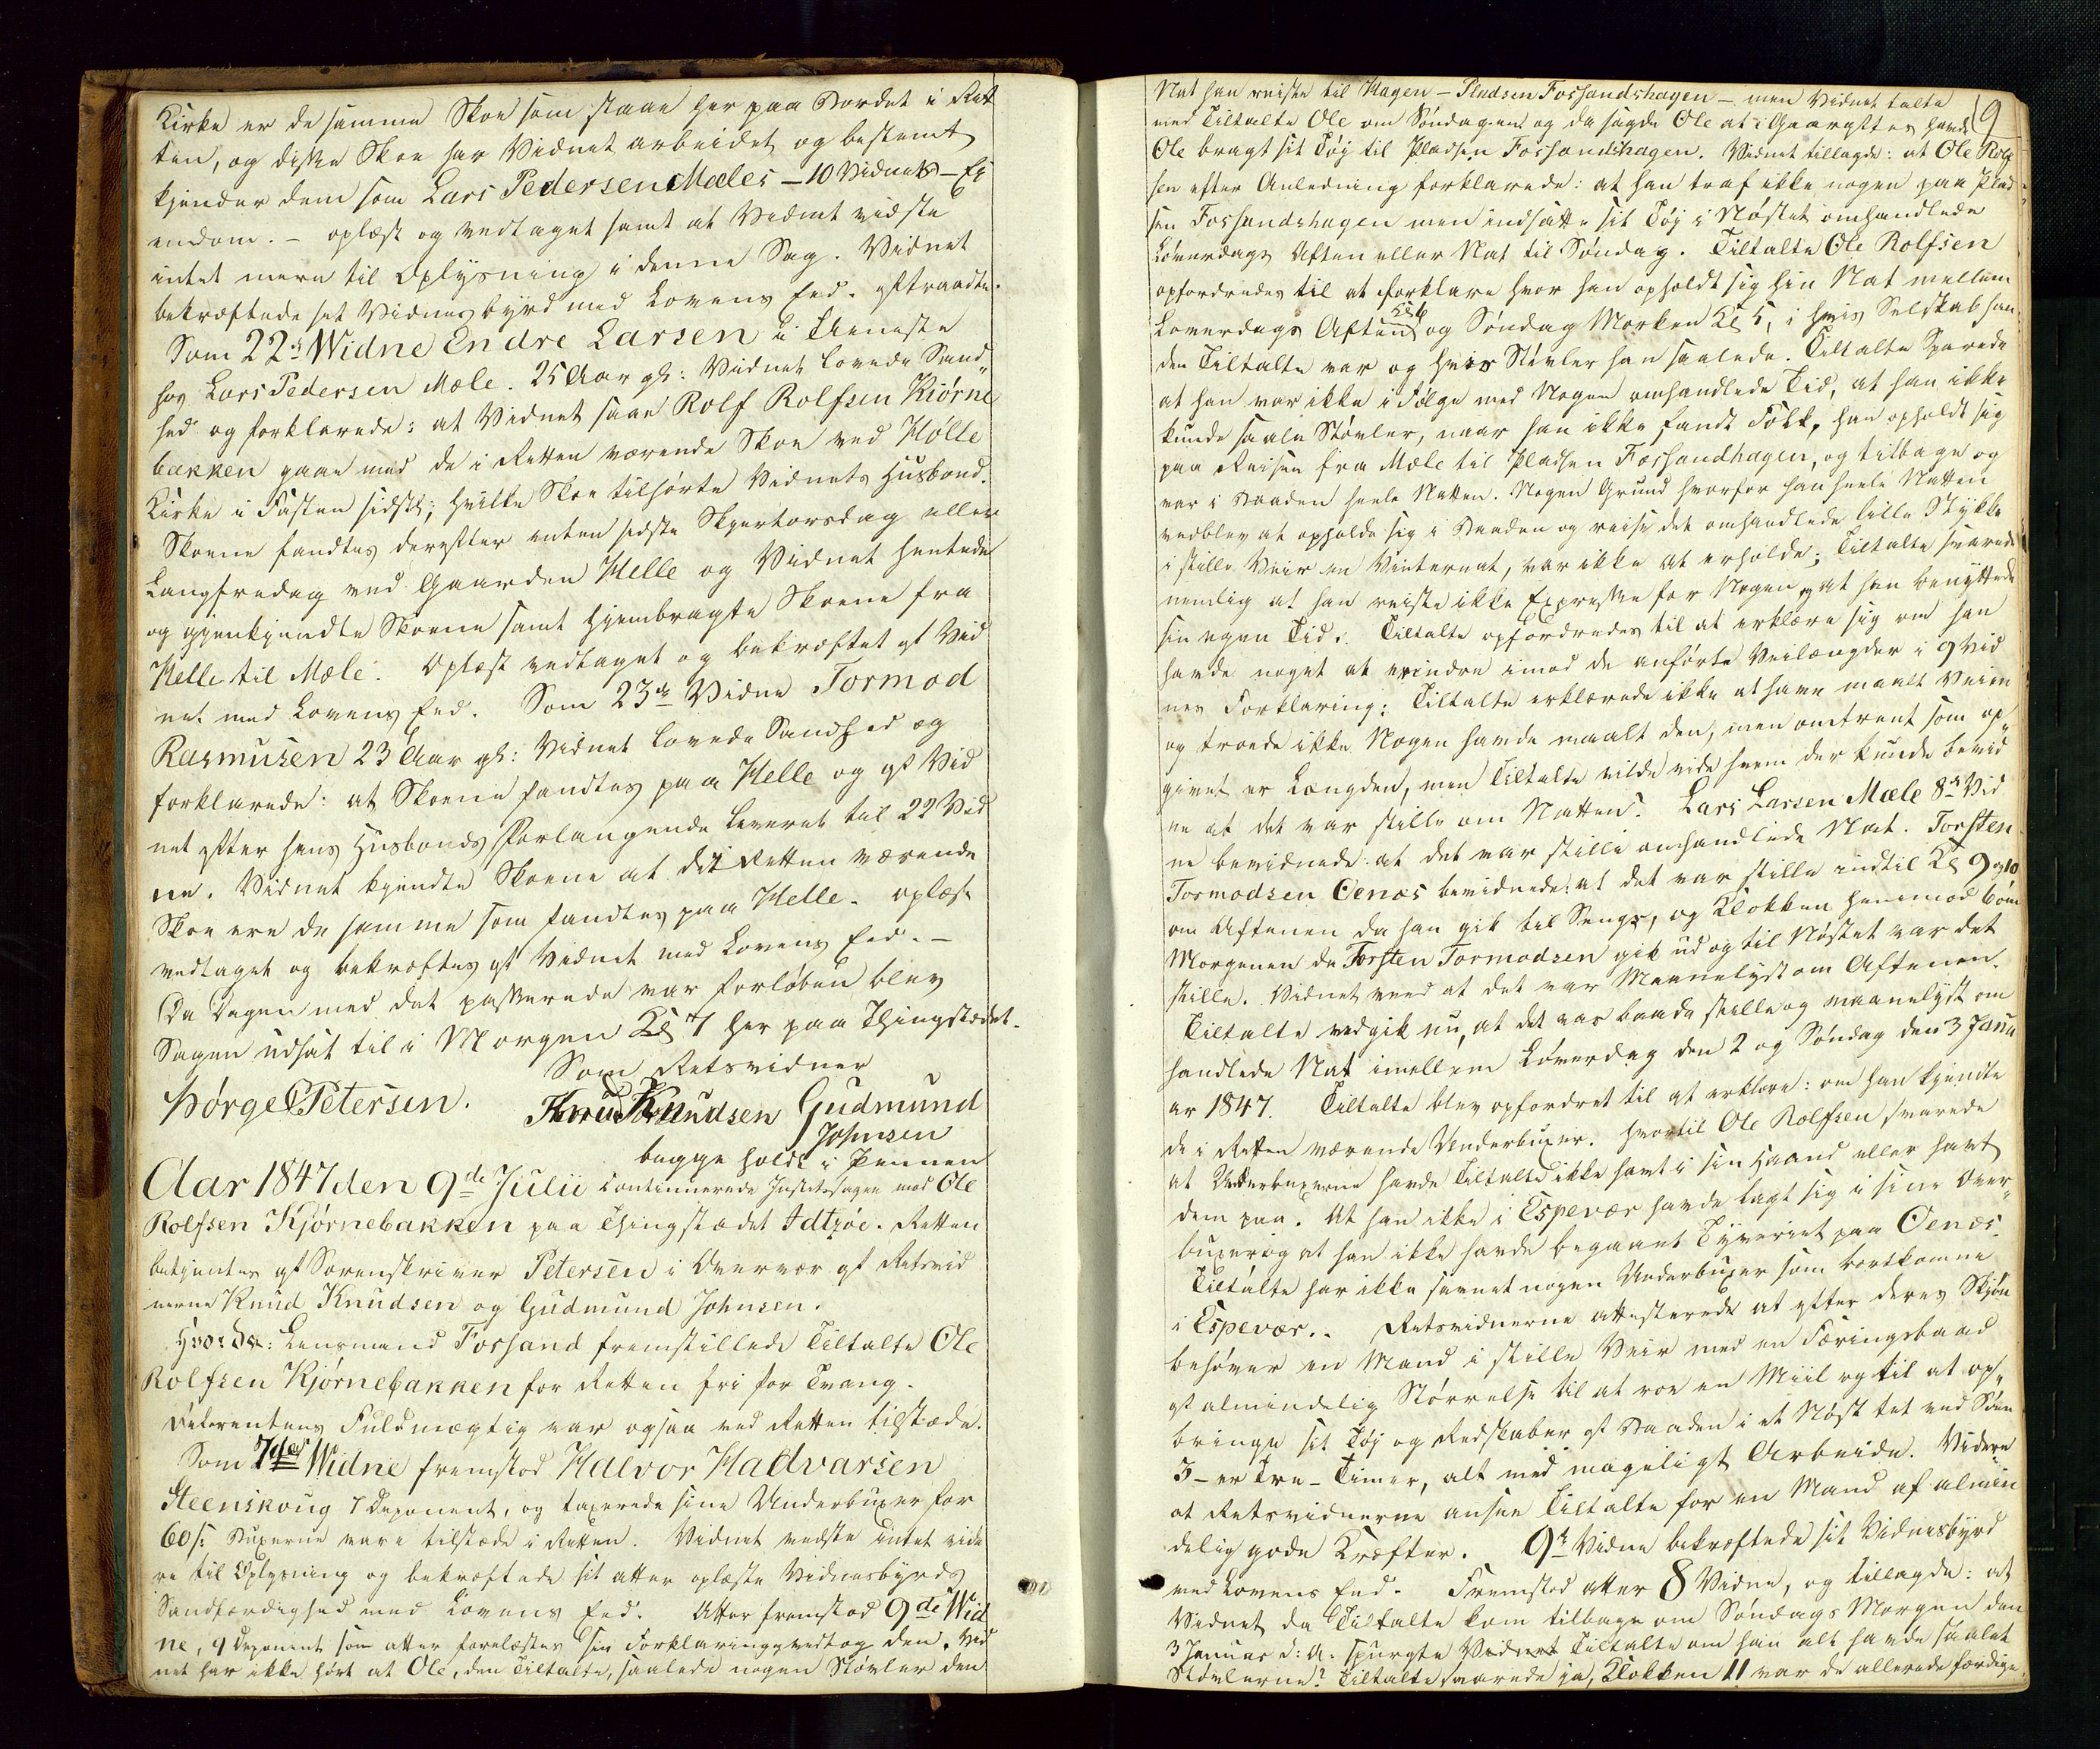 Kirke er de samme Skoe som staae her paa Bordet i Ret
ten, og disse Skoe har Vidnet arbeidet og bestemt
kjender dem som Lars Pedersen Mæles – 10 Vidnets – Ei
endom. – oplæst og vedtaget samt at Vidnet vidste
intet mere til Oplysning i denne Sag. Vidnet
bekræftede sit Vidnesbyrd med Lovens Eed. aftraadte.
Som 22de Widne Endre Larsen i Tieneste
hos Lars Pedersen Mæle. 25 Aar gl: Vidnet lovede Sand„
hed og forklarede: at Vidnet saae Rolf Rolfsen Kiørne
bakken gaae med de i Retten værende Skoe ved Holle
Kirke i Fasten sidstl; hvilke Skoe tilhørte Vidnets Husbond.
Skoene fandtes derefter enten sidste Skjertorsdag eller
Langfredag ved Gaarden Helle og Vidnet hentede
og gjenkjendte Skoene samt hjembragte Skoene fra
Helle til Mæle. Oplæst vedtaget og bekræftet af Vid
net med Lovens Eed. Som 23de Vidne Tormod
Rasmusen 23 Aar gl: Vidnet lovede Sandhed og
forklarede: at Skoene fandtes paa Helle og af Vid
net efter hans Husbonds Forlangende leveret til 22 Vid
ne. Vidnet kjendte Skoene at de i Retten værende
Skoe ere de samme som fandtes paa Helle. oplæst
vedtaget og bekræftes af Vidnet med Lovens Eed. –
Da Dagen med det passerede var forløben blev
Sagen udsat til i Morgen Kl 7 her paa Thingstædet.
Som Retsvidner
Børge Petersen. Knud Knudsen Gudmund
Johnsen
begge holdt i Pennen
Aar 1847 den 9de Julii continuerede Justitssagen mod Ole
Rolfsen Kjørnebakken paa Thingstædet Idtzøe. Retten
betjentes af Sorenskriver Petersen i Overvær af Retsvid
nerne Knud Knudsen og Gudmund Johnsen.
Hvorda: Lensmand Forsand fremstillede Tiltalte Ole
Rolfsen Kjørnebakken for Retten fri for Tvang.
Referentens Fuldmægtig var ogsaa ved Retten tilstæde.
Som 7de Widne fremstod Halvor Hadvarsen
Steenskoug 7 Deponent, og taxerede sine Underbuxer for
60 s: Buxerne vare tilstæde i Retten. Vidnet vedste intet vide
re til Oplysning og bekræftede sit atter oplæste Vidnesbyrds
Sandfærdighed med Lovens Eed. Atter fremstod 9de Wid
ne, 9 Deponent som atter forelæstes sin Forklaring og vedtog den. Vid
net har ikke hørt at Ole, den Tiltalte, saalede nogen Støvler den
9
Nat han reiste til Hagen – Pladsen Forsandshagen – men Vidnet talte
med Tiltalte Ole om Søndagen og da sagde Ole at i Gaaraftes havde
Ole bragt sit Tøj til Pladsen Forsandshagen. Vidnet tillagde: at Ole Rolf
sen efter Anledning forklarede: at han traf ikke nogen paa Plad
sen Forsandshagen men indsatte sit Tøj i Nøstet omhandlede
Løverdags Aften eller Nat til Søndag. Tiltalte Ole Rolfsen
opfordredes til at forklare hvor han opholdt sig hin Nat mellem
Loverdags Aften Kl 6 og Søndag Morken Kl 5, i hvis Selskab han
den Tiltalte var og hvis Støvler han saalede. Tiltalte svarede
at han var ikke i Følge med Nogen omhandlede Tid, at han ikke
kunde saale Støvler, naar han ikke fandt Folk, han opholdt sig
paa Reisen fra Mæle til Pladsen Forsandhagen, og tilbage og
var i Baaden heele Natten. Nogen Grund hvorfor han heele Natten
vedblev at opholde sig i Baaden og reise det omhandlede lille Stykke
i stille Veir en Vinternat, var ikke at erholde; Tiltalte svarede
nemlig at han reiste ikke Expresse for Nogen, at han benyttede
sin egen Tid. Tiltalte opfordredes til at erklære sig om han
havde noget at erindre imod de anførte Veilængder i 9 Vid
nes Forklaring: Tiltalte erklærede ikke at have maalt Veien
og troede ikke Nogen havde maalt den, men omtrent som op„
givet er Længden, men Tiltalte vilde vide hvem der kunde bevid
ne at det var stille om Natten. Lars Larsen Mæle 8de Vid
ne bevidnede at det var stille omhandlede Nat. Torsten
Tormodsen Oenæs bevidnede: at det var stille indtil Kl 9 og 10
om Aftenen da han gik til Sengs, og Klokken henimod 6 om
Morgenen da Torsten Tormodsen gik ud og til Nøstet var det
stille. Vidnet veed at det var Maanelyst om Aftenen.
Tiltalte vedgik nu, at det var baade stille og maanelyst om
handlede Nat imellem Løverdag den 2 og Søndag den 3 Janu
ar 1847. Tiltalte blev opfordret til at erklære: om han kjendte
de i Retten værende Underbuxer. Hvortil Ole Rolfsen svarede
at Underbuxerne havde Tiltalte ikke havt i sin Haand eller havt
dem paa. At han ikke i Espevær havde lagt sig i sine Over„
buxer og at han ikke havde begaaet Tyveriet paa Oenæs.
Tiltalte har ikke savnet nogen Underbuxer som bortkomne
i Espevær. Retsvidnerne attesterede at efter deres Skjøn
behøver en Mand i stille Veir med en Færingsbaad
af almindelig Størrelse til at roe en Miil og til at op„
bringe sit Tøj og Redskaber af Baaden i et Nøst tet ved Søen
3 – er tre – Timer, alt med mageligt Arbeide. Videre
at Retsvidnerne ansee Tiltalte for en Mand af almin
delig gode Kræfter. 9de Vidne bekræftede sit Vidnesbyrd
med Lovens Eed. Fremstod atter 8 Vidne, og tillagde: at
Vidnet da Tiltalte kom tilbage om Søndags Morgen den
3 Januar d: A: spurgte Vidnet Tiltalte om han alt havde saalet
Støvlerne? Tiltalte svarede ja, Klokken 11 var de allerede færdige